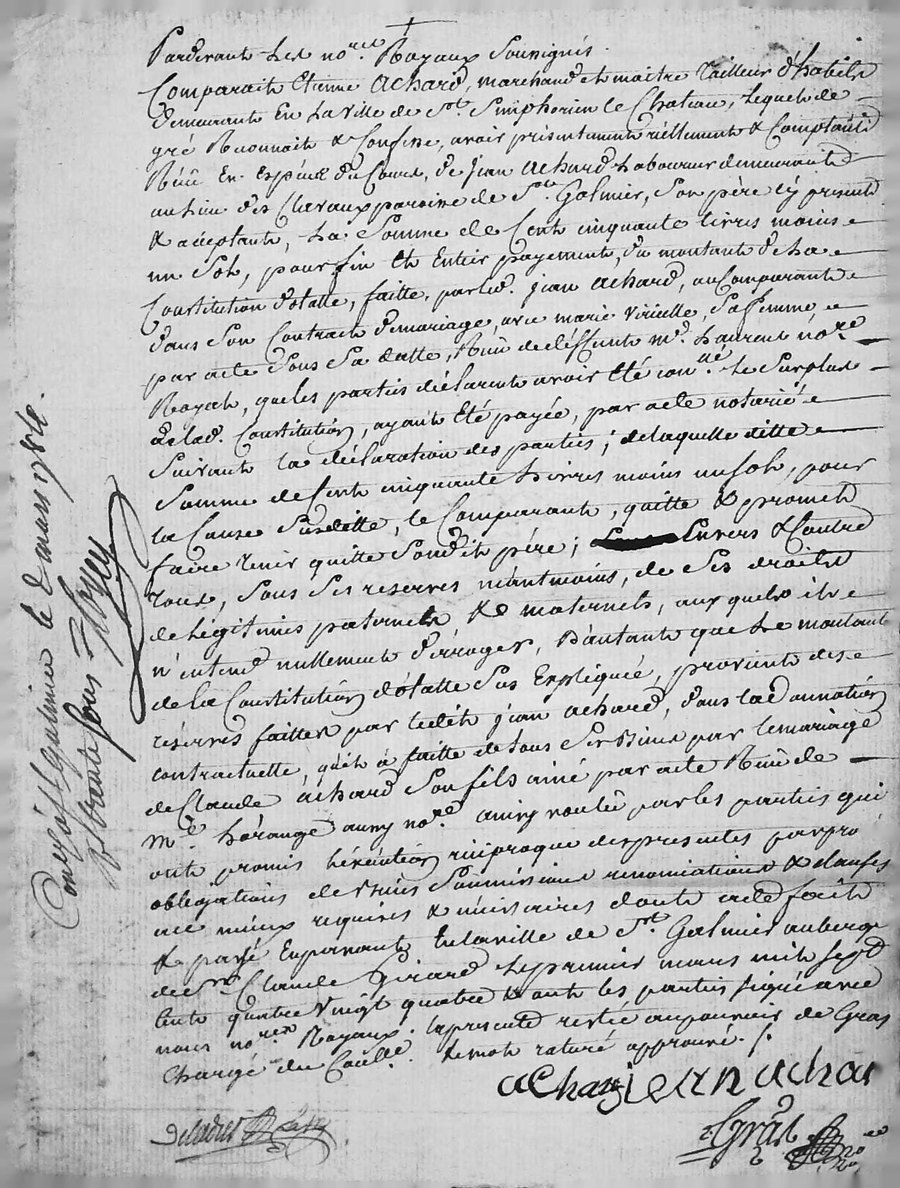 Pardevant Les no.res Royaux Soussignés.
Comparait Etienne Achard, marchand et maitre Tailleur d'habits
demeurant En La Ville de St. Simphorien le Chateau, Lequel de
gré Reconnait & Confesse, avoir présentement réellement & Comptant
Reçu En Espèces du Cours, de jean Achard Laboureur demeurant
au Lieu des Chevaux paroisse de St. Galmier, Son père cy present
& acceptant, La Somme de Cent cinquante livres moins
un Sol, pour fin Et Entier payement du montant de La
Constitution dotalle, faitte, par led. jean Achard, au Comparant
dans Son Contract de mariage, avec marie Virielle, Sa femme
par acte Sous Sa datte, Reçu de deffunt Me. Laurent no.re
Royal, que les parties déclarent avoir Eté con.llé Le Surplus
de lad. Constitution, ayant Eté payée, par acte notarié
Suivant la déclaration des parties; de laquelle ditte
Somme de Cent cinquante Livres moins un Sol, pour
la Cause Susditte, le Comparant, quitte & promet
faire tenir quitte Sondit père; Envers & Contre
Tous, Sous Ses reserves néantmoins, de Ses droits
de Légitimes paternels & maternels, auxquels il
n'entend nullement déroger, D'autant que Le montant
de la Constitution dotalle Sus Expliquée, provient des
réserves faittes par ledit jean Achard, dans la donnation
contractuelle, qu'il à faitte de tous Ses Biens par le mariage
de Claude Achard Son fils ainé par acte Reçu de
Me. Lérange aussy no.re ainsy voulu par les parties qui
ont promis L'éxécution réciproque des presentes par pro
obligations de Biens Soumissions renonciations & clauses
au mieux requises & nécéssaires dont acte fait
& passé En presence En la ville de St. Galmier auberge
de Sr. Claude Girard Le premier mars mil Sept
Cent quatre Vingt quatre & ont les parties Signé avec
nous no.res Royaux. La presente restée au pouvoir de Gras
Chargé du Coulle. Le mot raturé approuvé./.
achard jean achar
Gras
Con.lé à St Galmier le 2 mars 1784.